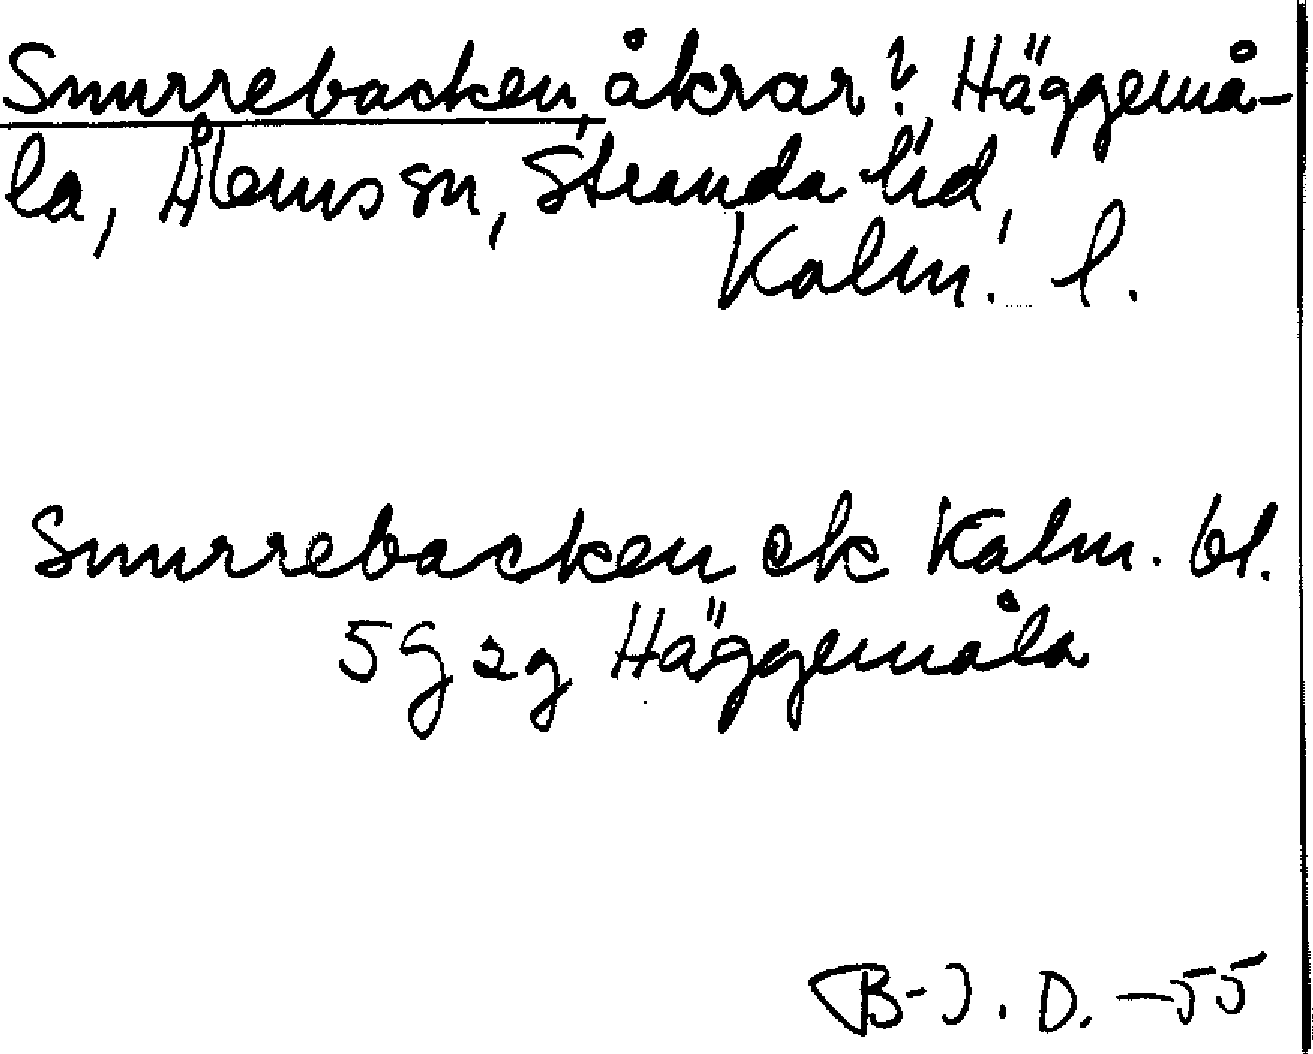 Snurrebacken, åkrar?, Häggemå-
la, Ålems sn, Stranda hd,
Kalm. l.
Snurrebacken ek Kalm. bl.
5 g 2 g Häggemåla
B-J. D. -55